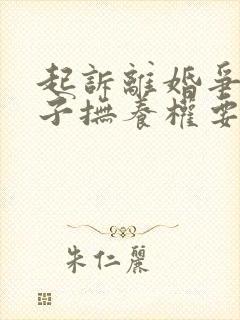 起訴離婚爭
子撫養權要
朱仁麗